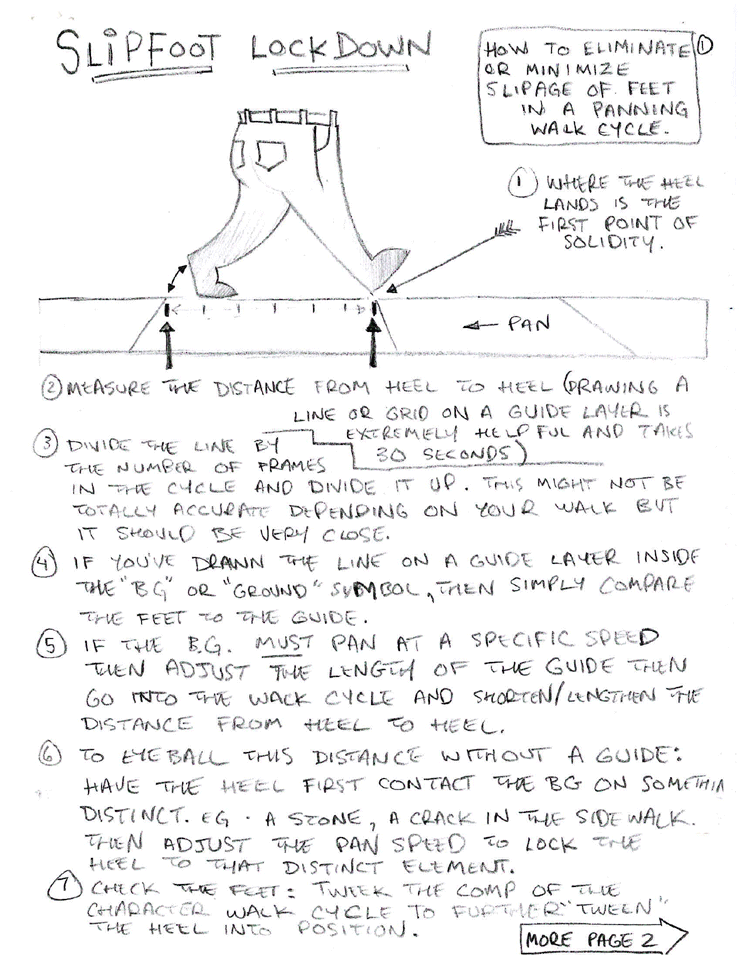 SLIPFOOT LOCKDOWN
HOW TO ELIMINATE ①
OR MINIMIZE
SLIPAGE OF FEET
IN A PANNING
WALK CYCLE.
① WHERE THE HEEL
LANDS IS THE
FIRST POINT OF
SOLIDITY.
← PAN
② MEASURE THE DISTANCE FROM HEEL TO HEEL (DRAWING A
LINE OR GRID ON A GUIDE LAYER IS
EXTREMELY HELPFUL AND TAKES
30 SECONDS)
③ DIVIDE THE LINE BY
THE NUMBER OF FRAMES
IN THE CYCLE AND DIVIDE IT UP. THIS MIGHT NOT BE
TOTALLY ACCURATE DEPENDING ON YOUR WALK BUT
IT SHOULD BE VERY CLOSE.
④ IF YOU'VE DRAWN THE LINE ON A GUIDE LAYER INSIDE
THE "BG" OR "GROUND" SYMBOL, THEN SIMPLY COMPARE
THE FEET TO THE GUIDE.
⑤ IF THE B.G. MUST PAN AT A SPECIFIC SPEED
THEN ADJUST THE LENGTH OF THE GUIDE THEN
GO INTO THE WALK CYCLE AND SHORTEN/LENGTHEN THE
DISTANCE FROM HEEL TO HEEL.
⑥ TO EYEBALL THIS DISTANCE WITHOUT A GUIDE:
HAVE THE HEEL FIRST CONTACT THE BG ON SOMETHIN
DISTINCT. EG. A STONE, A CRACK IN THE SIDEWALK.
THEN ADJUST THE PAN SPEED TO LOCK THE
HEEL TO THAT DISTINCT ELEMENT.
⑦ CHECK THE FEET: TWEEK THE COMP OF THE
CHARACTER WALK CYCLE TO FURTHER "TWEEN"
THE HEEL INTO POSITION.
MORE PAGE 2